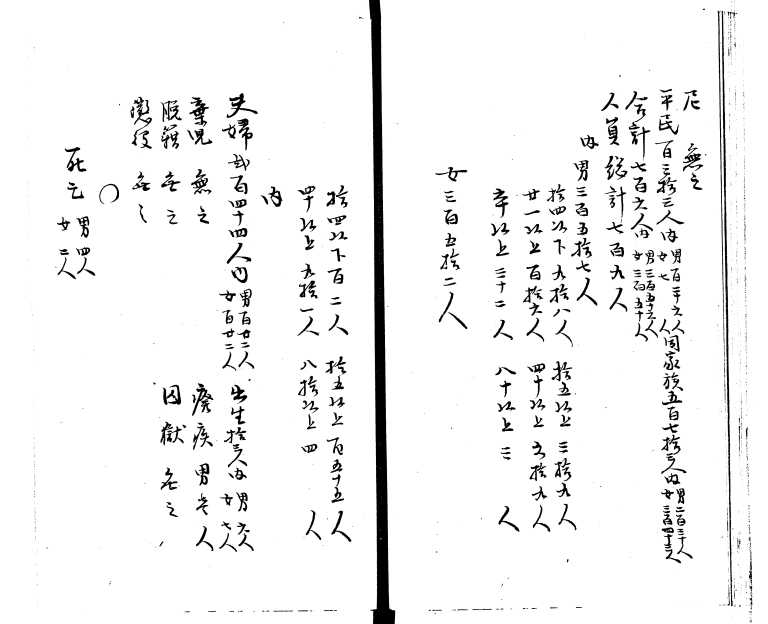 尼 無之
平民百三拾三人内男百二十六人女七人同家族五百七拾三人内男二百三十人女三百四十三人
合計七百六人内男三百五十六人女三百五十人
人員総計七百九人
内男三百五拾七人
拾四以下九拾八人 拾五以上三拾九人
廿一以上百拾六人 四十以上六拾九人
六十以上三十二人 八十以上三人
女三百五拾二人
拾四以下百二人 拾五以上百五十五人
四十以上九拾一人 八拾以上四人
内
夫婦弐百四十四人内男百廿二人女百廿二人 出生拾三人内男六人女七人
棄児 無之 廢疾男壱人
脱籍無之 囚獄無之
懲役無之
○
死亡男四人女二人